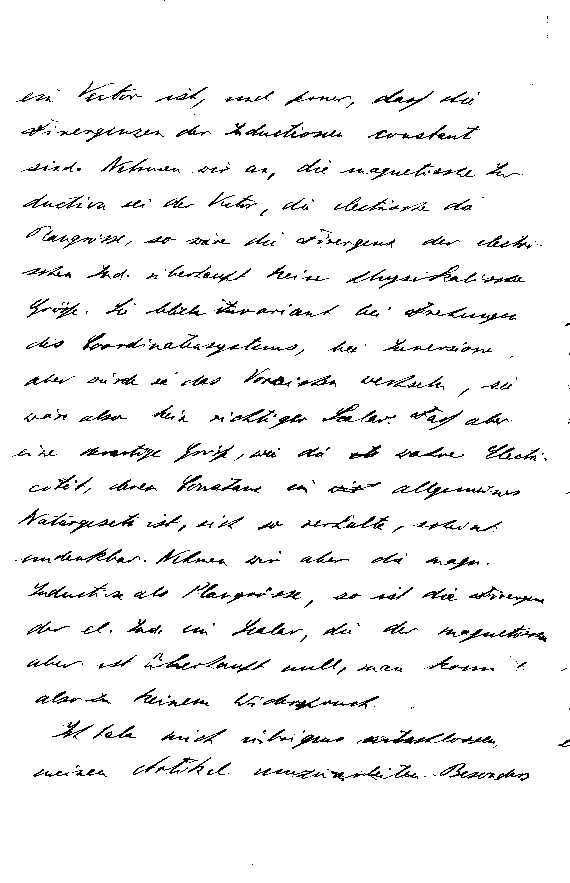 ein Vector ist, und ferner, dass die
Divergenzen der Inductionen constant
sind. Nehmen wir an, die magnetische In-
duction sei der Vector, die electrische die
Plangrösse, so wäre die Divergenz der electri-
schen Ind. überhaupt keine physikalische
Größe. Sie bliebe invariant bei Drehungen
des Coordinatensystems, bei Inversionen
aber würde sie das Vorzeichen wechseln, sie
wäre also kein richtiger Scalar. Daß aber
eine derartige Größe, wie die wahre Electri-
cität, deren Constanz ein allgemeines
Naturgesetz ist, sich so verhalte, scheint
undenkbar. Nehmen wir aber die magn.
Induction als Plangrösse, so ist die Divergenz
der el. Ind. ein Scalar, die der magnetischen
aber ist überhaupt null, man kommt
also zu keinem Widerspruch.
Ich habe mich übrigens entschlossen,
meinen Artikel umzuarbeiten. Besonders